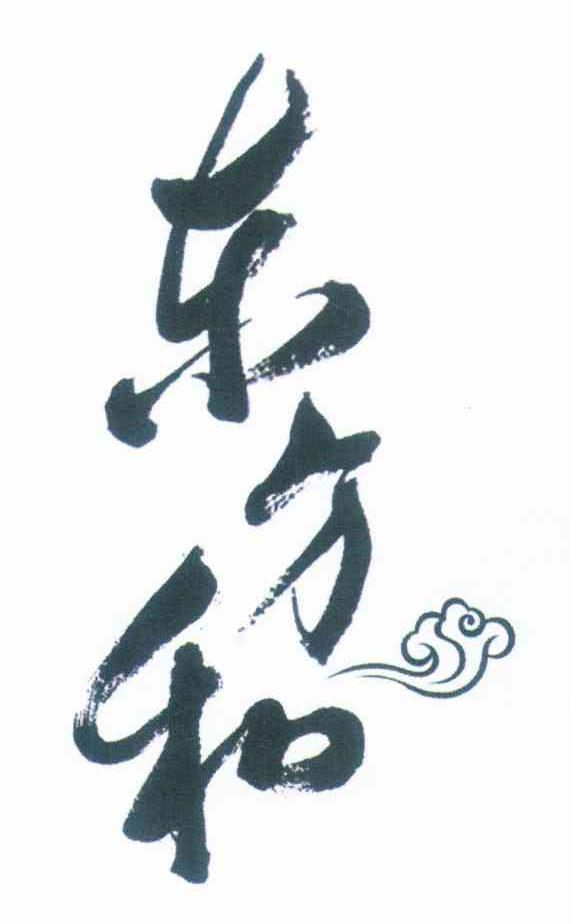 东方和